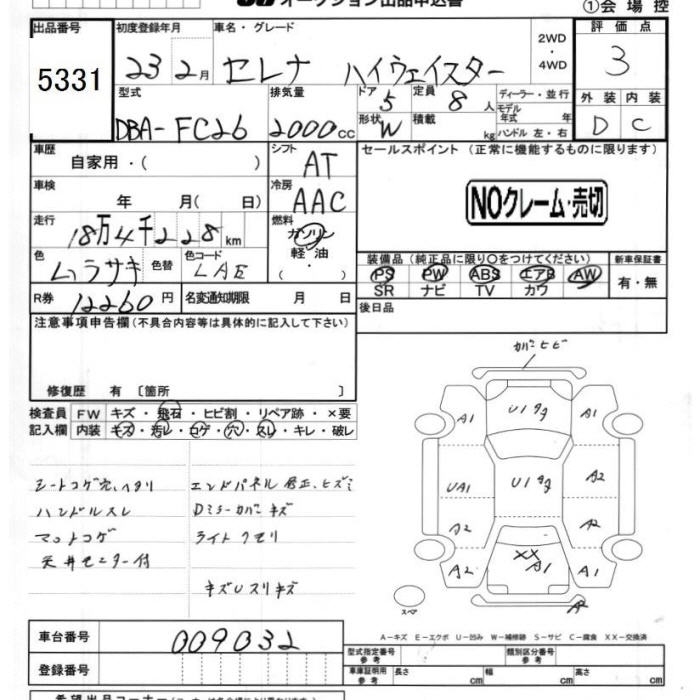 オークション出品申込書
①会場控
出品番号 5331
初度登録年月 23 2月
車名・グレード セレナ ハイウェイスター
2WD・4WD
評価点 3
外装 D 内装 C
型式 DBA-FC26
排気量 2000cc
ドア 5
形状 W
定員 8人
積載 kg
ディーラー・並行
モデル年式 年
ハンドル 左・右
車歴 自家用・( )
シフト AT
車検 年 月( 日)
冷房 AAC
走行 18万4千228km
燃料 ガソリン・軽油・( )
色 ムラサキ 色替
色コード LAE
R券 12260円
名変通知期限 月 日
セールスポイント (正常に機能するものに限ります)
NOクレーム・売切
装備品 (純正品に限り○をつけてください)
PS PW ABS エアB AW
SR ナビ TV カワ
新車保証書 有・無
後日品
注意事項申告欄 (不具合内容等は具体的に記入して下さい)
修復歴 有 〔箇所 〕
検査員記入欄
FW キズ・飛石・ヒビ割・リペア跡・×要
内装 キズ・汚レ・コゲ・穴・スレ・キレ・破レ
シートコゲ穴、ヘタリ
ハンドルスレ
マットコゲ
天井モニター付
エンドパネル修正、ヒズミ
Dミラーカバーキズ
ライトクモリ
キズUスリキズ
カバーヒビ
A1 U1 A1
UA1 U1 A2
A2 A2
A2 XX A1 A1
スペア
A
A-キズ E-エクボ U-凹み W-補修跡 S-サビ C-腐食 XX-交換済
車台番号 009032
登録番号
型式指定番号 参考
類別区分番号 参考
車庫証明用 参考 長さ cm 幅 cm 高さ cm
希望出品コーナー